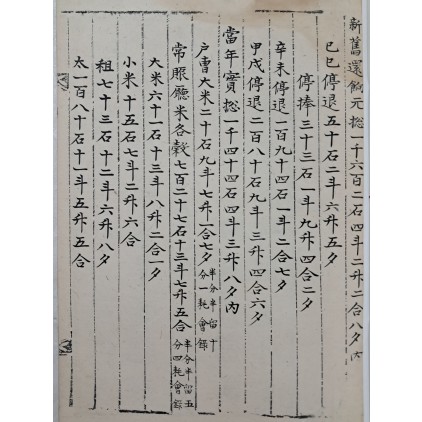 新舊還餉元摠一千六百二石四斗二升二合八夕內
己巳停退五十石二斗六升五夕
停捧三十三石一斗九升四合二夕
辛未停退一百九十四石一斗二合七夕
甲戌停退二百八十石九斗三升四合六夕
當年實摠一千四十四石四斗三升八夕內
户曹大米二十石九斗七升一合七夕半分半留十分一耗會錄
常賑廳米各穀七百二十七石十三斗七升五合半分半留五分四耗會錄
大米六十一石十三斗八升二合一夕
小米十五石七斗二升六合
租七十三石十二斗六升八夕
太一百八十石十一斗五升五合